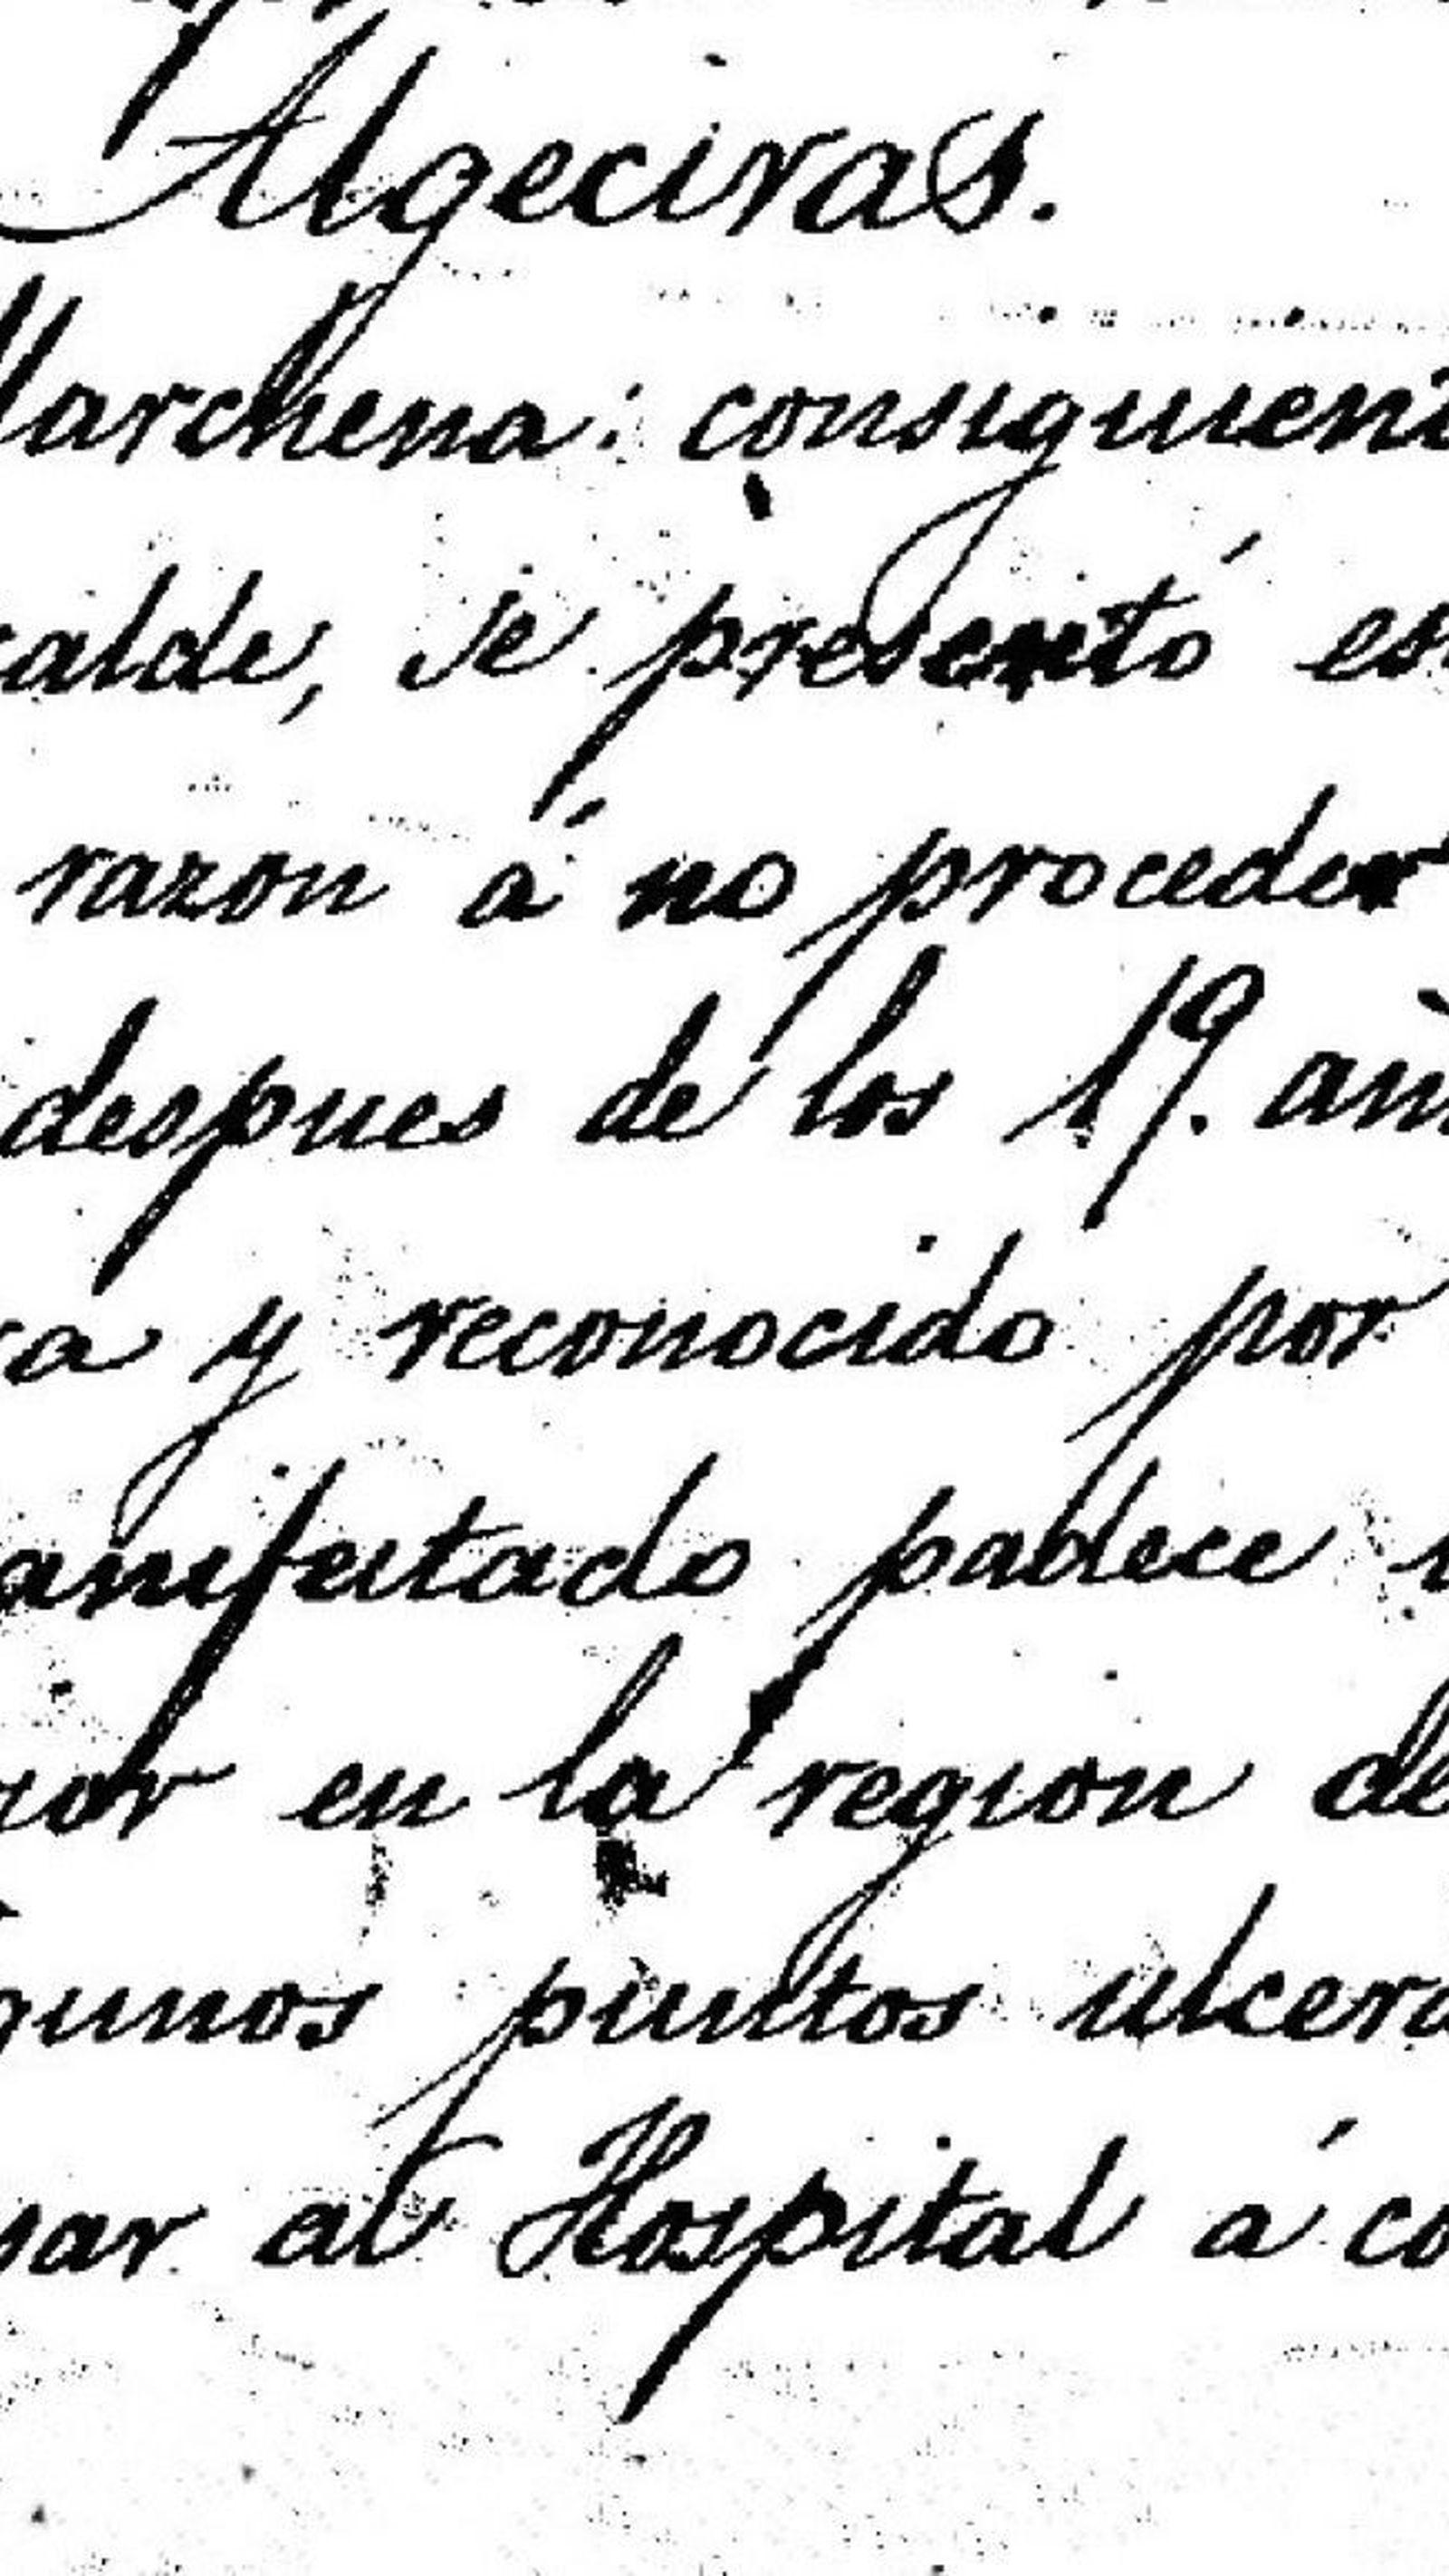 Algeciras.
Marchena: consiguient
calde, se presentó es
razon á no proceder
despues de los 19. añ
ca y reconocido por
anifestado padece
en la region de
gunos puntos ulcera
sar al Hospital á co